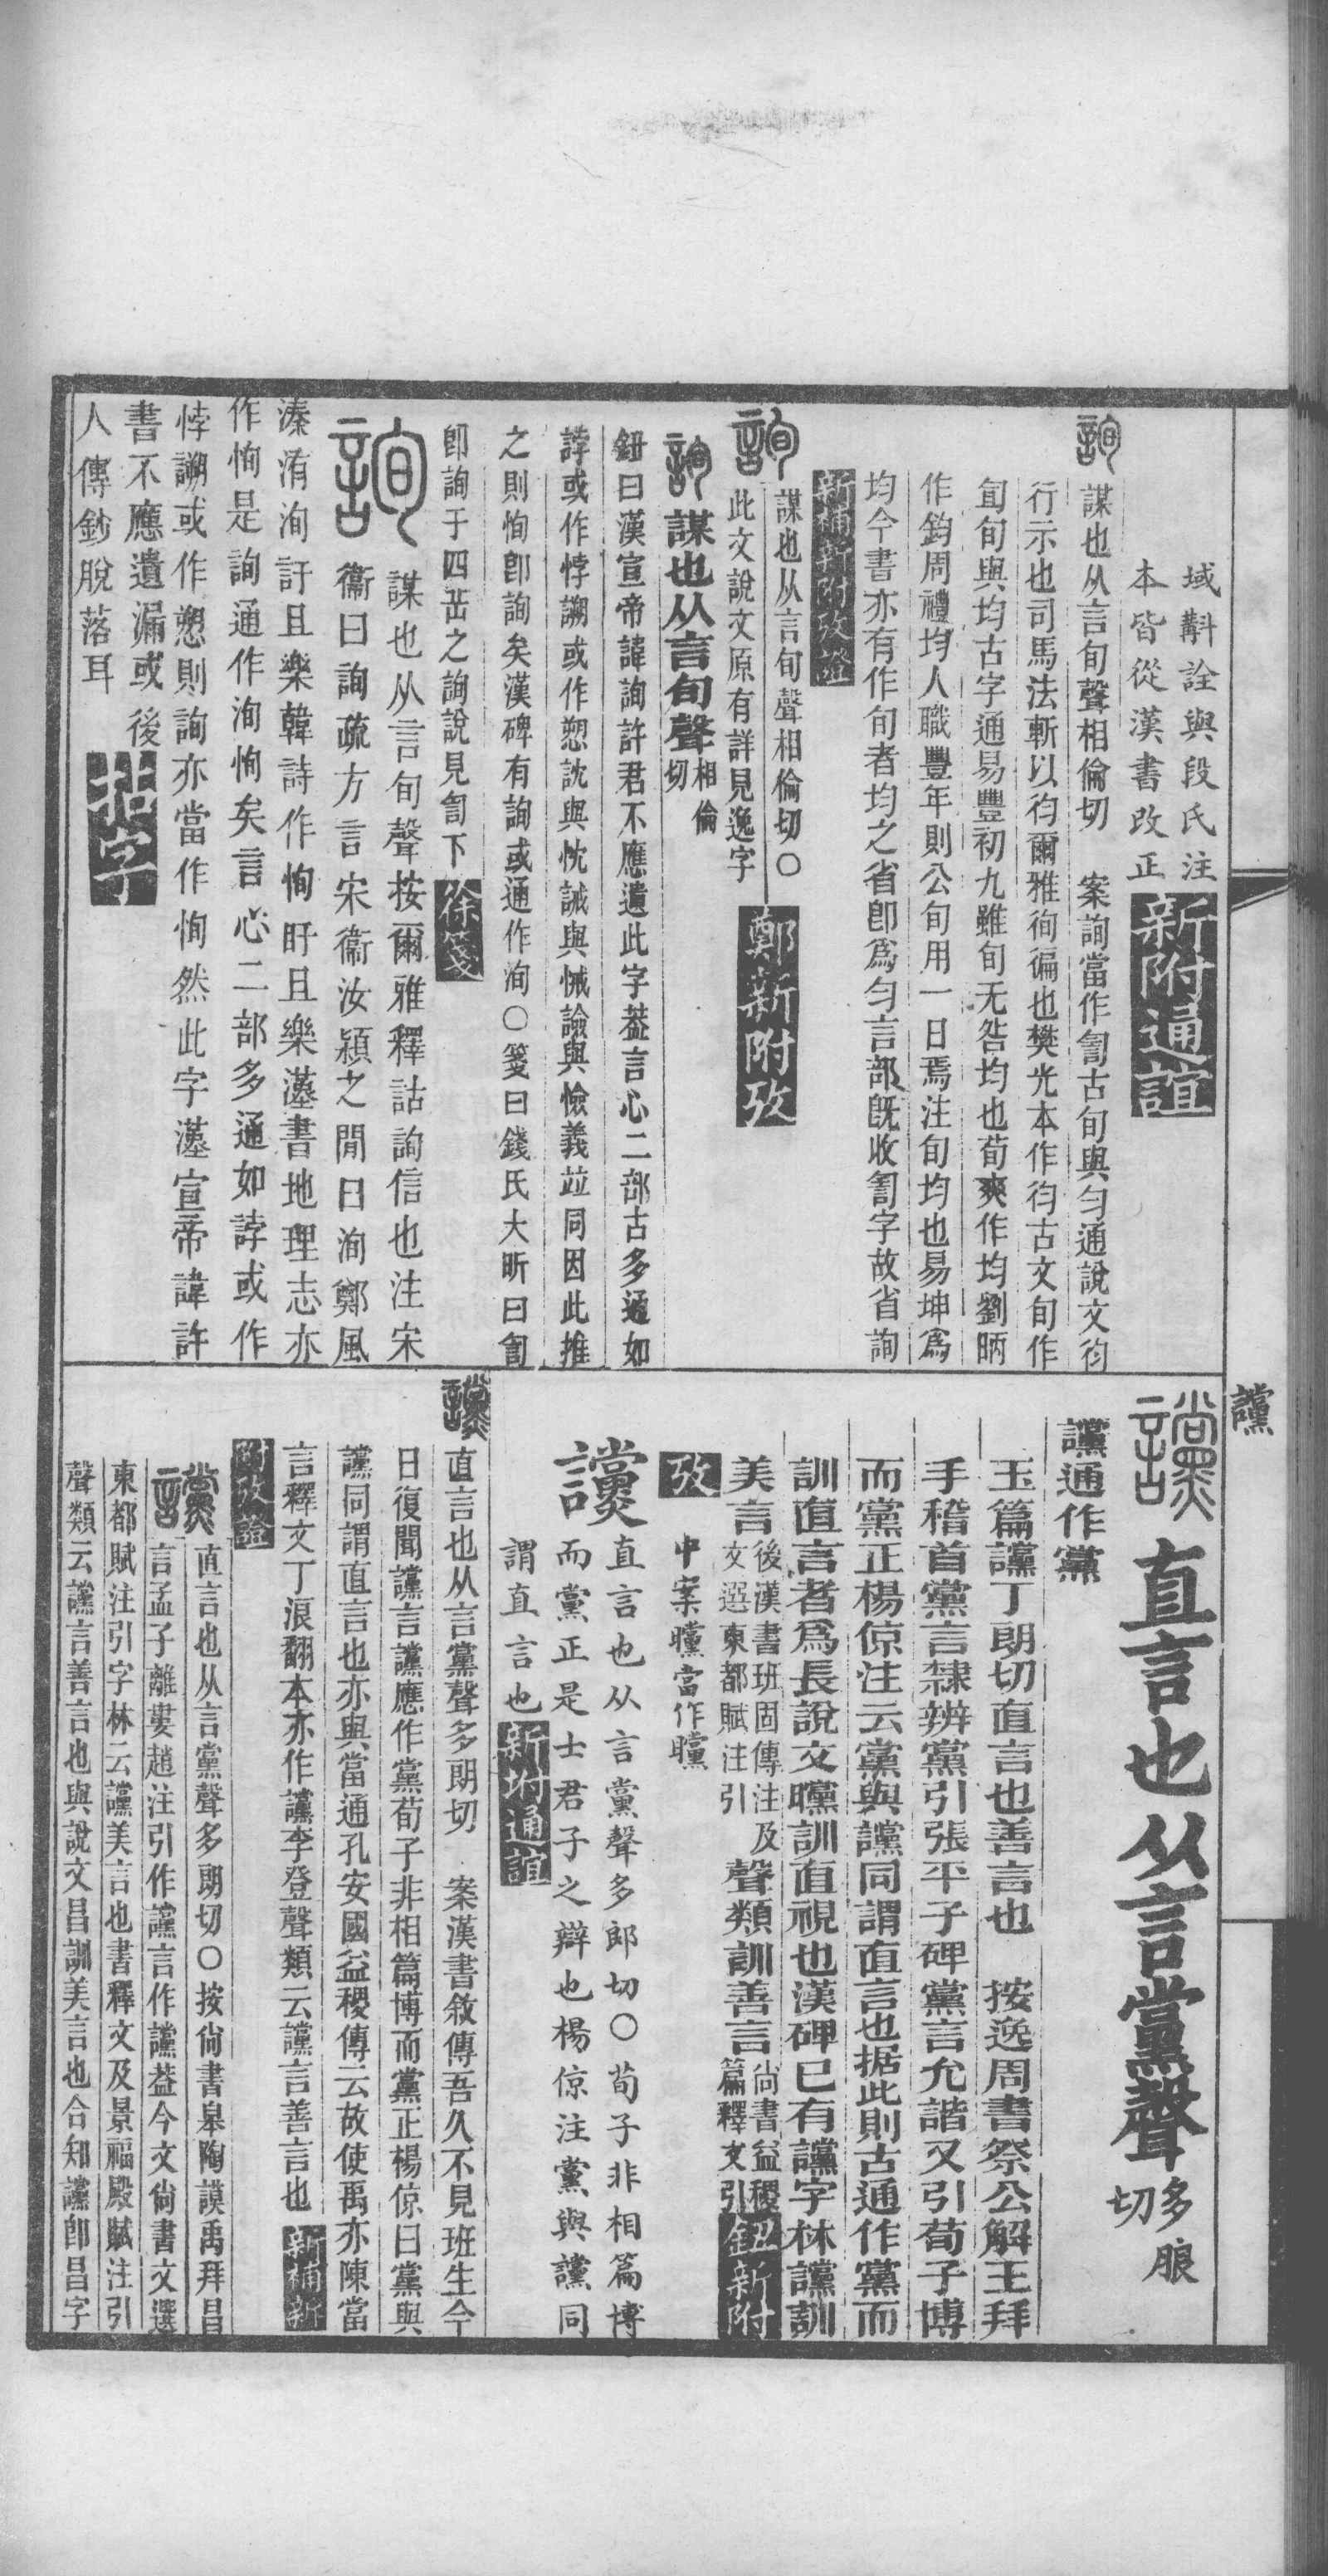 域斠詮與段氏注
本皆從漢書改正
新附通誼
詢
謀也从言旬聲相倫切　案詢當作訇古旬與勻通說文㣙
行示也司馬法斬以㣙爾雅徇徧也樊光本作㣙古文旬作
旬旬與均古字通易豐初九雖旬无咎均也荀爽作均劉昞
作鈞周禮均人職豐年則公旬用一日焉注旬均也易坤爲
均今書亦有作旬者均之省卽爲勻言部旣收訇字故省詢
新補新附攷證
詢
謀也从言旬聲相倫切〇
此文說文原有詳見逸字
鄭新附攷
詢謀也从言旬聲相倫切
鈕曰漢宣帝諱詢許君不應遺此字葢言心二部古多通如
誖或作悖謝或作愬訦與忱諴與悈譣與憸義竝同因此推
之則恂卽詢矣漢碑有詢或通作洵〇箋曰錢氏大昕曰訇
卽詢于四岳之詢說見訇下
徐箋
詢
謀也从言旬聲按爾雅釋詁詢信也注宋
衞曰詢疏方言宋衞汝潁之閒曰洵鄭風
溱洧洵訏且樂韓詩作恂盱且樂漢書地理志亦
作恂是詢通作洵恂矣言心二部多通如誖或作
悖謝或作愬則詢亦當作恂然此字漢宣帝諱許
書不應遺漏或後
人傳鈔脫落耳
讜
讜
直言也从言黨聲多朖切
讜通作黨
玉篇讜丁朗切直言也善言也　按逸周書祭公解王拜
手稽首黨言隸辨黨引張平子碑黨言允諧又引荀子博
而黨正楊倞注云黨與讜同謂直言也据此則古通作黨而
訓直言者爲長說文矘訓直視也漢碑已有讜字林讜訓
美言後漢書班固傳注及文選東都賦注引聲類訓善言尚書益稷篇釋文引
鈕新附
攷
中案矘當作矘
讜
直言也从言黨聲多郎切〇荀子非相篇博
而黨正是士君子之辯也楊倞注黨與讜同
謂直言也
新附通誼
讜
直言也从言黨聲多朗切　案漢書敘傳吾久不見班生今
日復聞讜言讜應作黨荀子非相篇博而黨正楊倞曰黨與
讜同謂直言也亦與當通孔安國益稷傳云故使禹亦陳當
言釋文丁浪翻本亦作讜李登聲類云讜言善言也
新補新
附攷證
讜
直言也从言黨聲多朗切〇按尚書皋陶謨禹拜昌
言孟子離婁趙注引作讜言作讜葢今文尚書文選
東都賦注引字林云讜美言也書釋文及景福殿賦注引
聲類云讜言善言也與說文昌訓美言也合知讜卽昌字